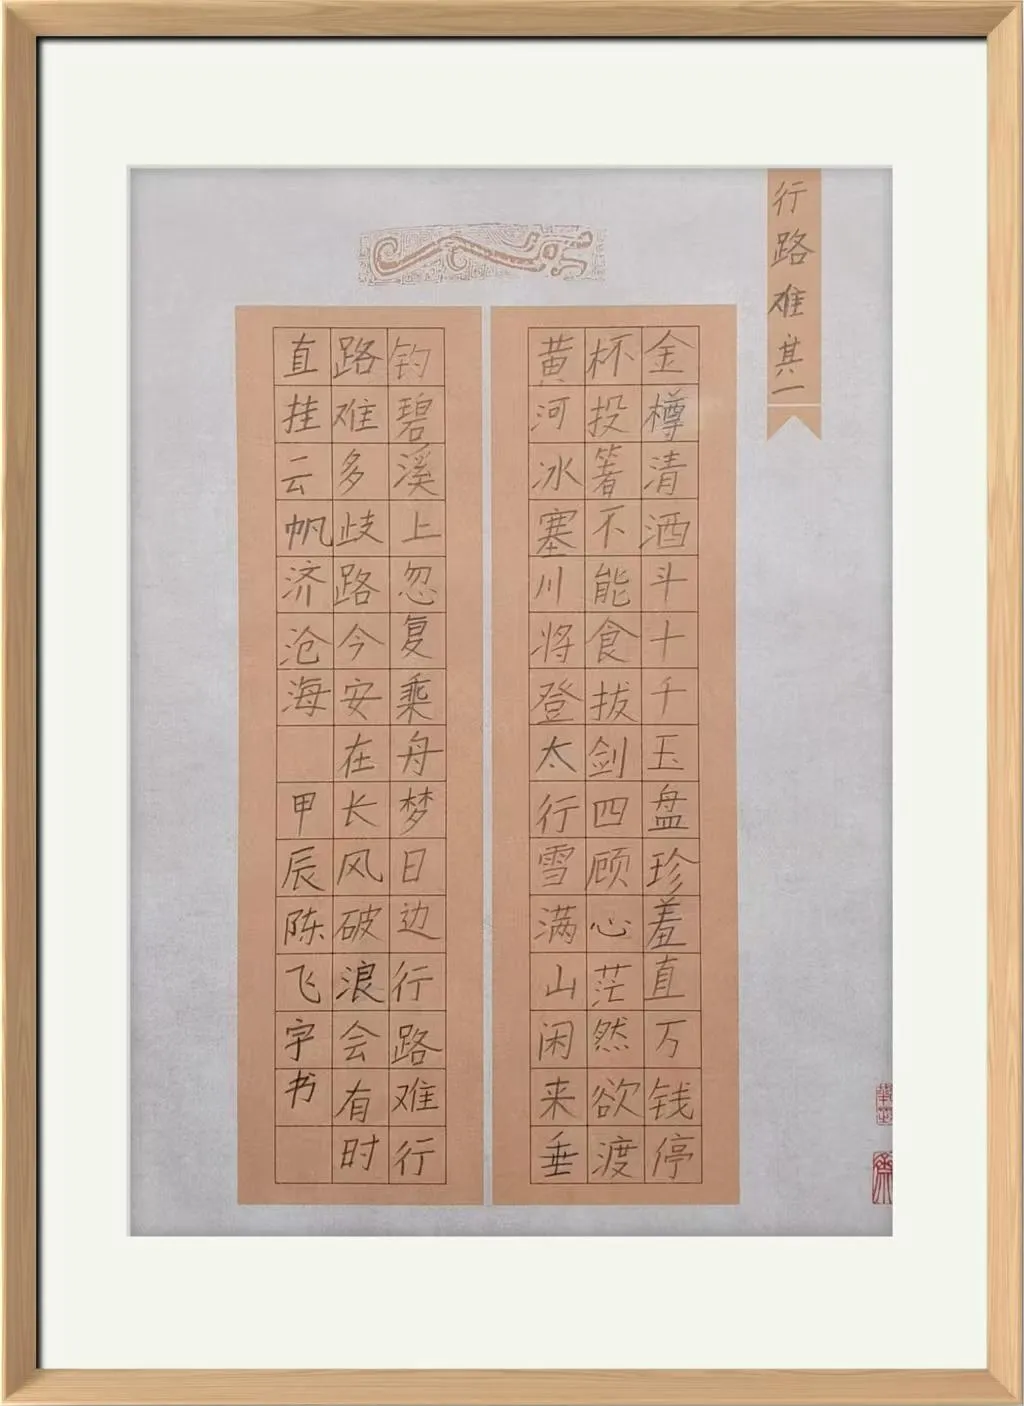 行路难其一
金樽清酒斗十千玉盘珍羞直万钱停
杯投箸不能食拔剑四顾心茫然欲渡
黄河冰塞川将登太行雪满山闲来垂
钓碧溪上忽复乘舟梦日边行路难行
路难多歧路今安在长风破浪会有时
直挂云帆济沧海 甲辰陈飞宇书